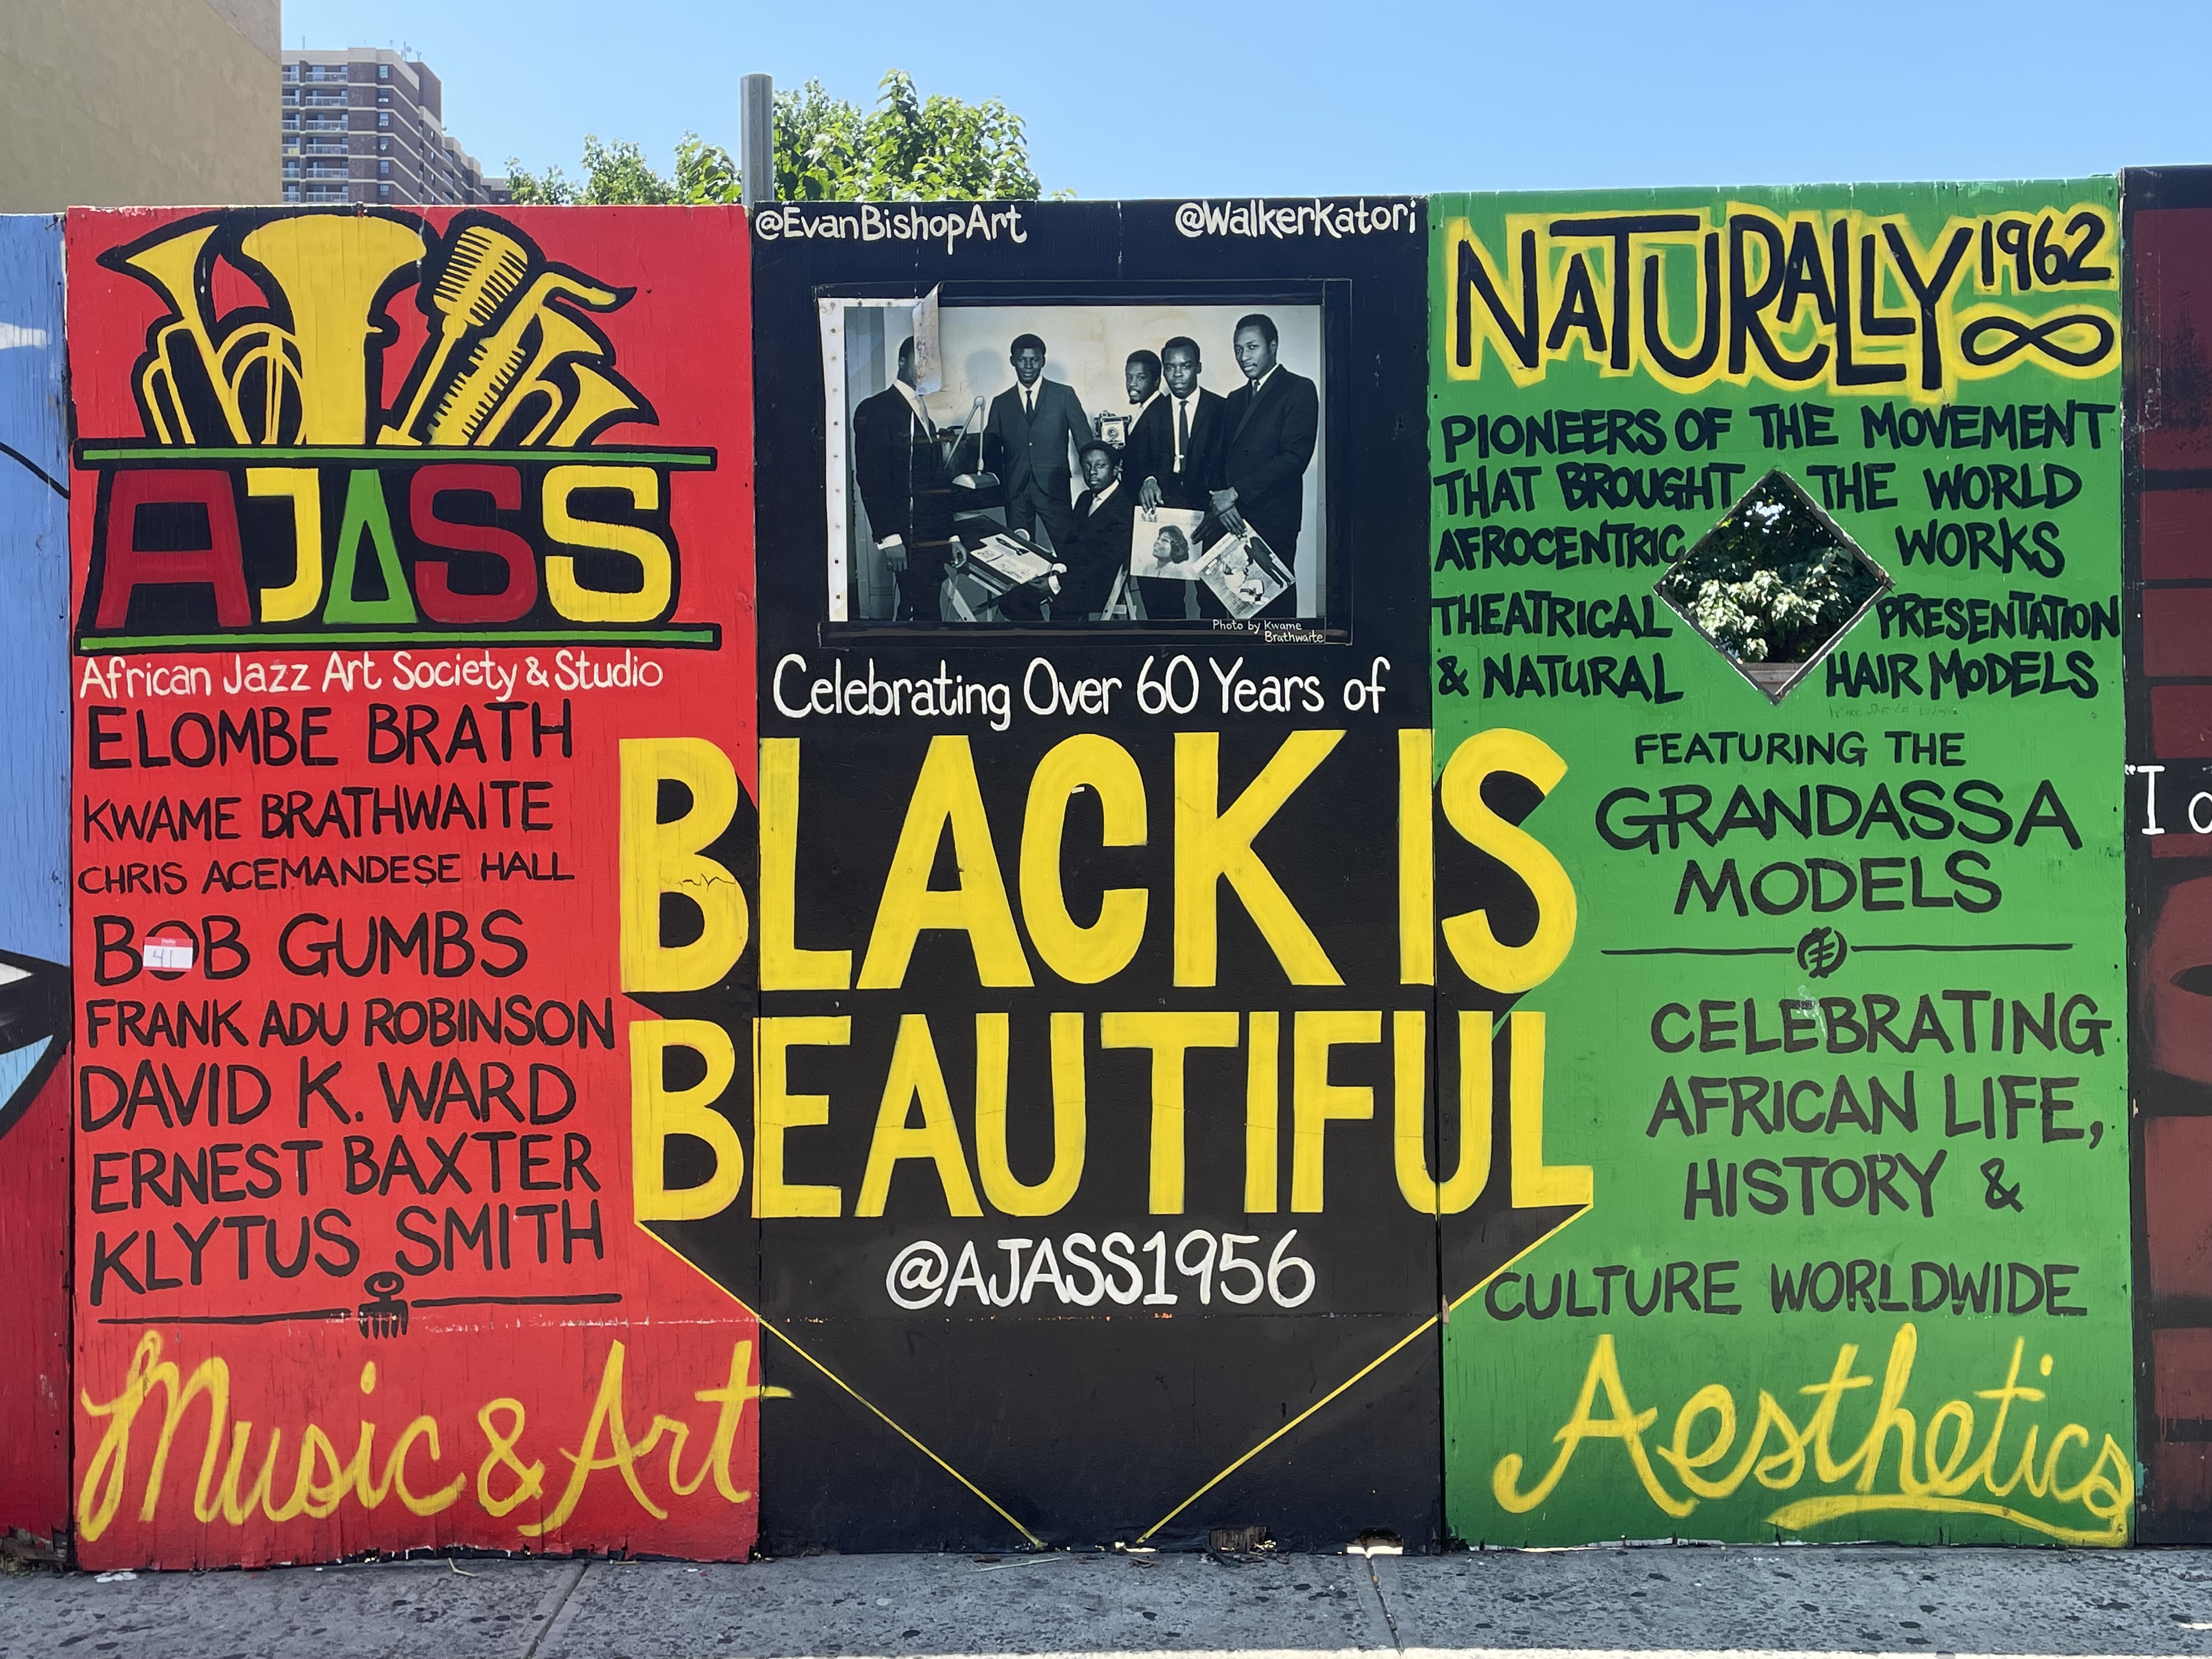 AJASS
African Jazz Art Society & Studio
ELOMBE BRATH
KWAME BRATHWAITE
CHRIS ACEMANDESE HALL
BOB GUMBS
Hello
41
FRANK ADU ROBINSON
DAVID K. WARD
ERNEST BAXTER
KLYTUS SMITH
Music & Art
@EvanBishopArt
@WalkerKatori
Photo by Kwame
Brathwaite
Celebrating Over 60 Years of
BLACK IS
BEAUTIFUL
@AJASS1956
NATURALLY 1962
PIONEERS OF THE MOVEMENT
THAT BROUGHT THE WORLD
AFROCENTRIC WORKS
THEATRICAL PRESENTATION
& NATURAL HAIR MODELS
FEATURING THE
GRANDASSA
MODELS
CELEBRATING
AFRICAN LIFE,
HISTORY &
CULTURE WORLDWIDE
Aesthetics
"I